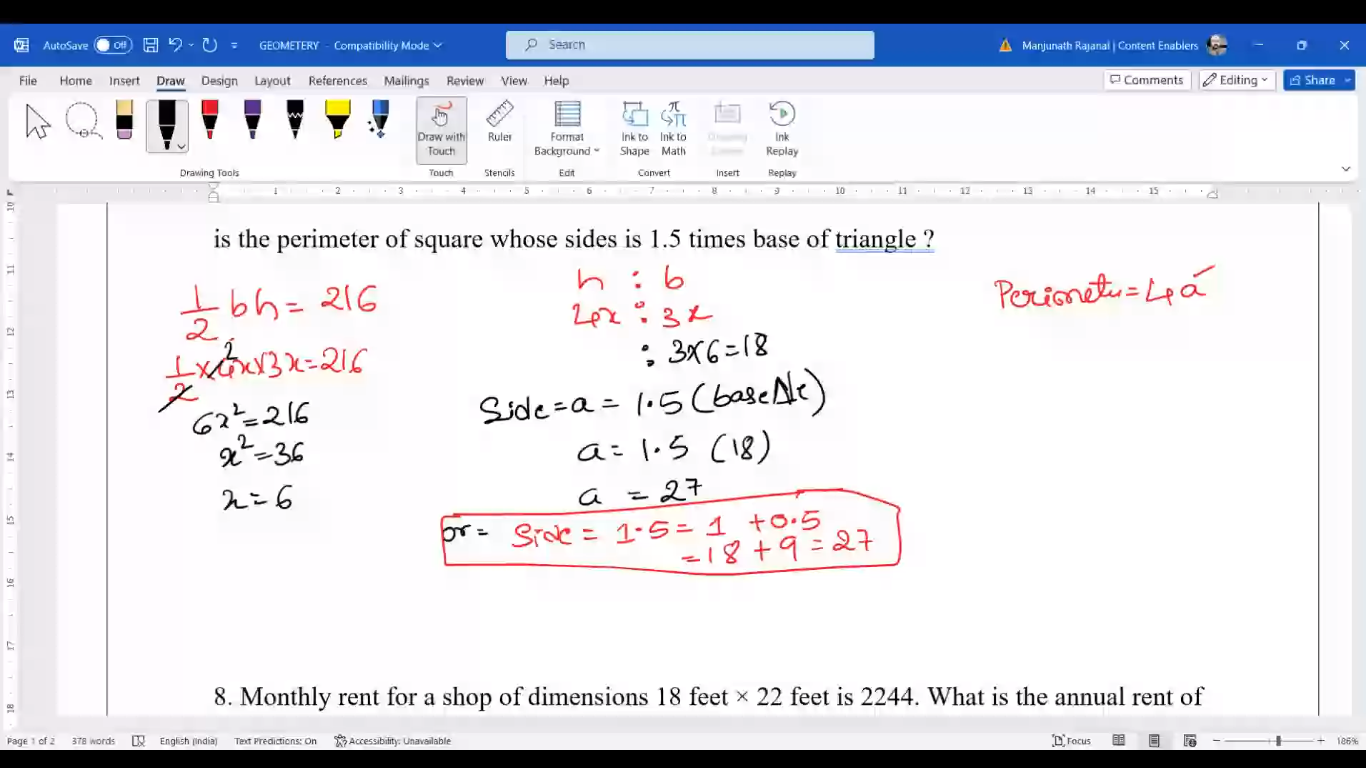 AutoSave Off GEOMETERY - Compatibility Mode Search Manjunath Rajanal | Content Enablers
File Home Insert Draw Design Layout References Mailings Review View Help Comments Editing Share
Draw with Touch Ruler Format Background Ink to Shape Ink to Math Drawing Canvas Ink Replay
Drawing Tools Touch Stencils Edit Convert Insert Replay
1 2 3 4 5 6 7 8 9 10 11 12 13 14 15
10
11
12
13
14
15
16
17
18
is the perimeter of square whose sides is 1.5 times base of triangle ?
1/2 bh = 216
1/2 × 4x × 3x = 216
2
6x² = 216
x² = 36
x = 6
h : b
4x : 3x
: 3×6 = 18
Side = a = 1.5 (base Δle)
a = 1.5 (18)
a = 27
or = Side = 1.5 = 1 + 0.5
= 18 + 9 = 27
Perimeter = 4a
8. Monthly rent for a shop of dimensions 18 feet × 22 feet is 2244. What is the annual rent of
Page 1 of 2 378 words English (India) Text Predictions: On Accessibility: Unavailable Focus 186%